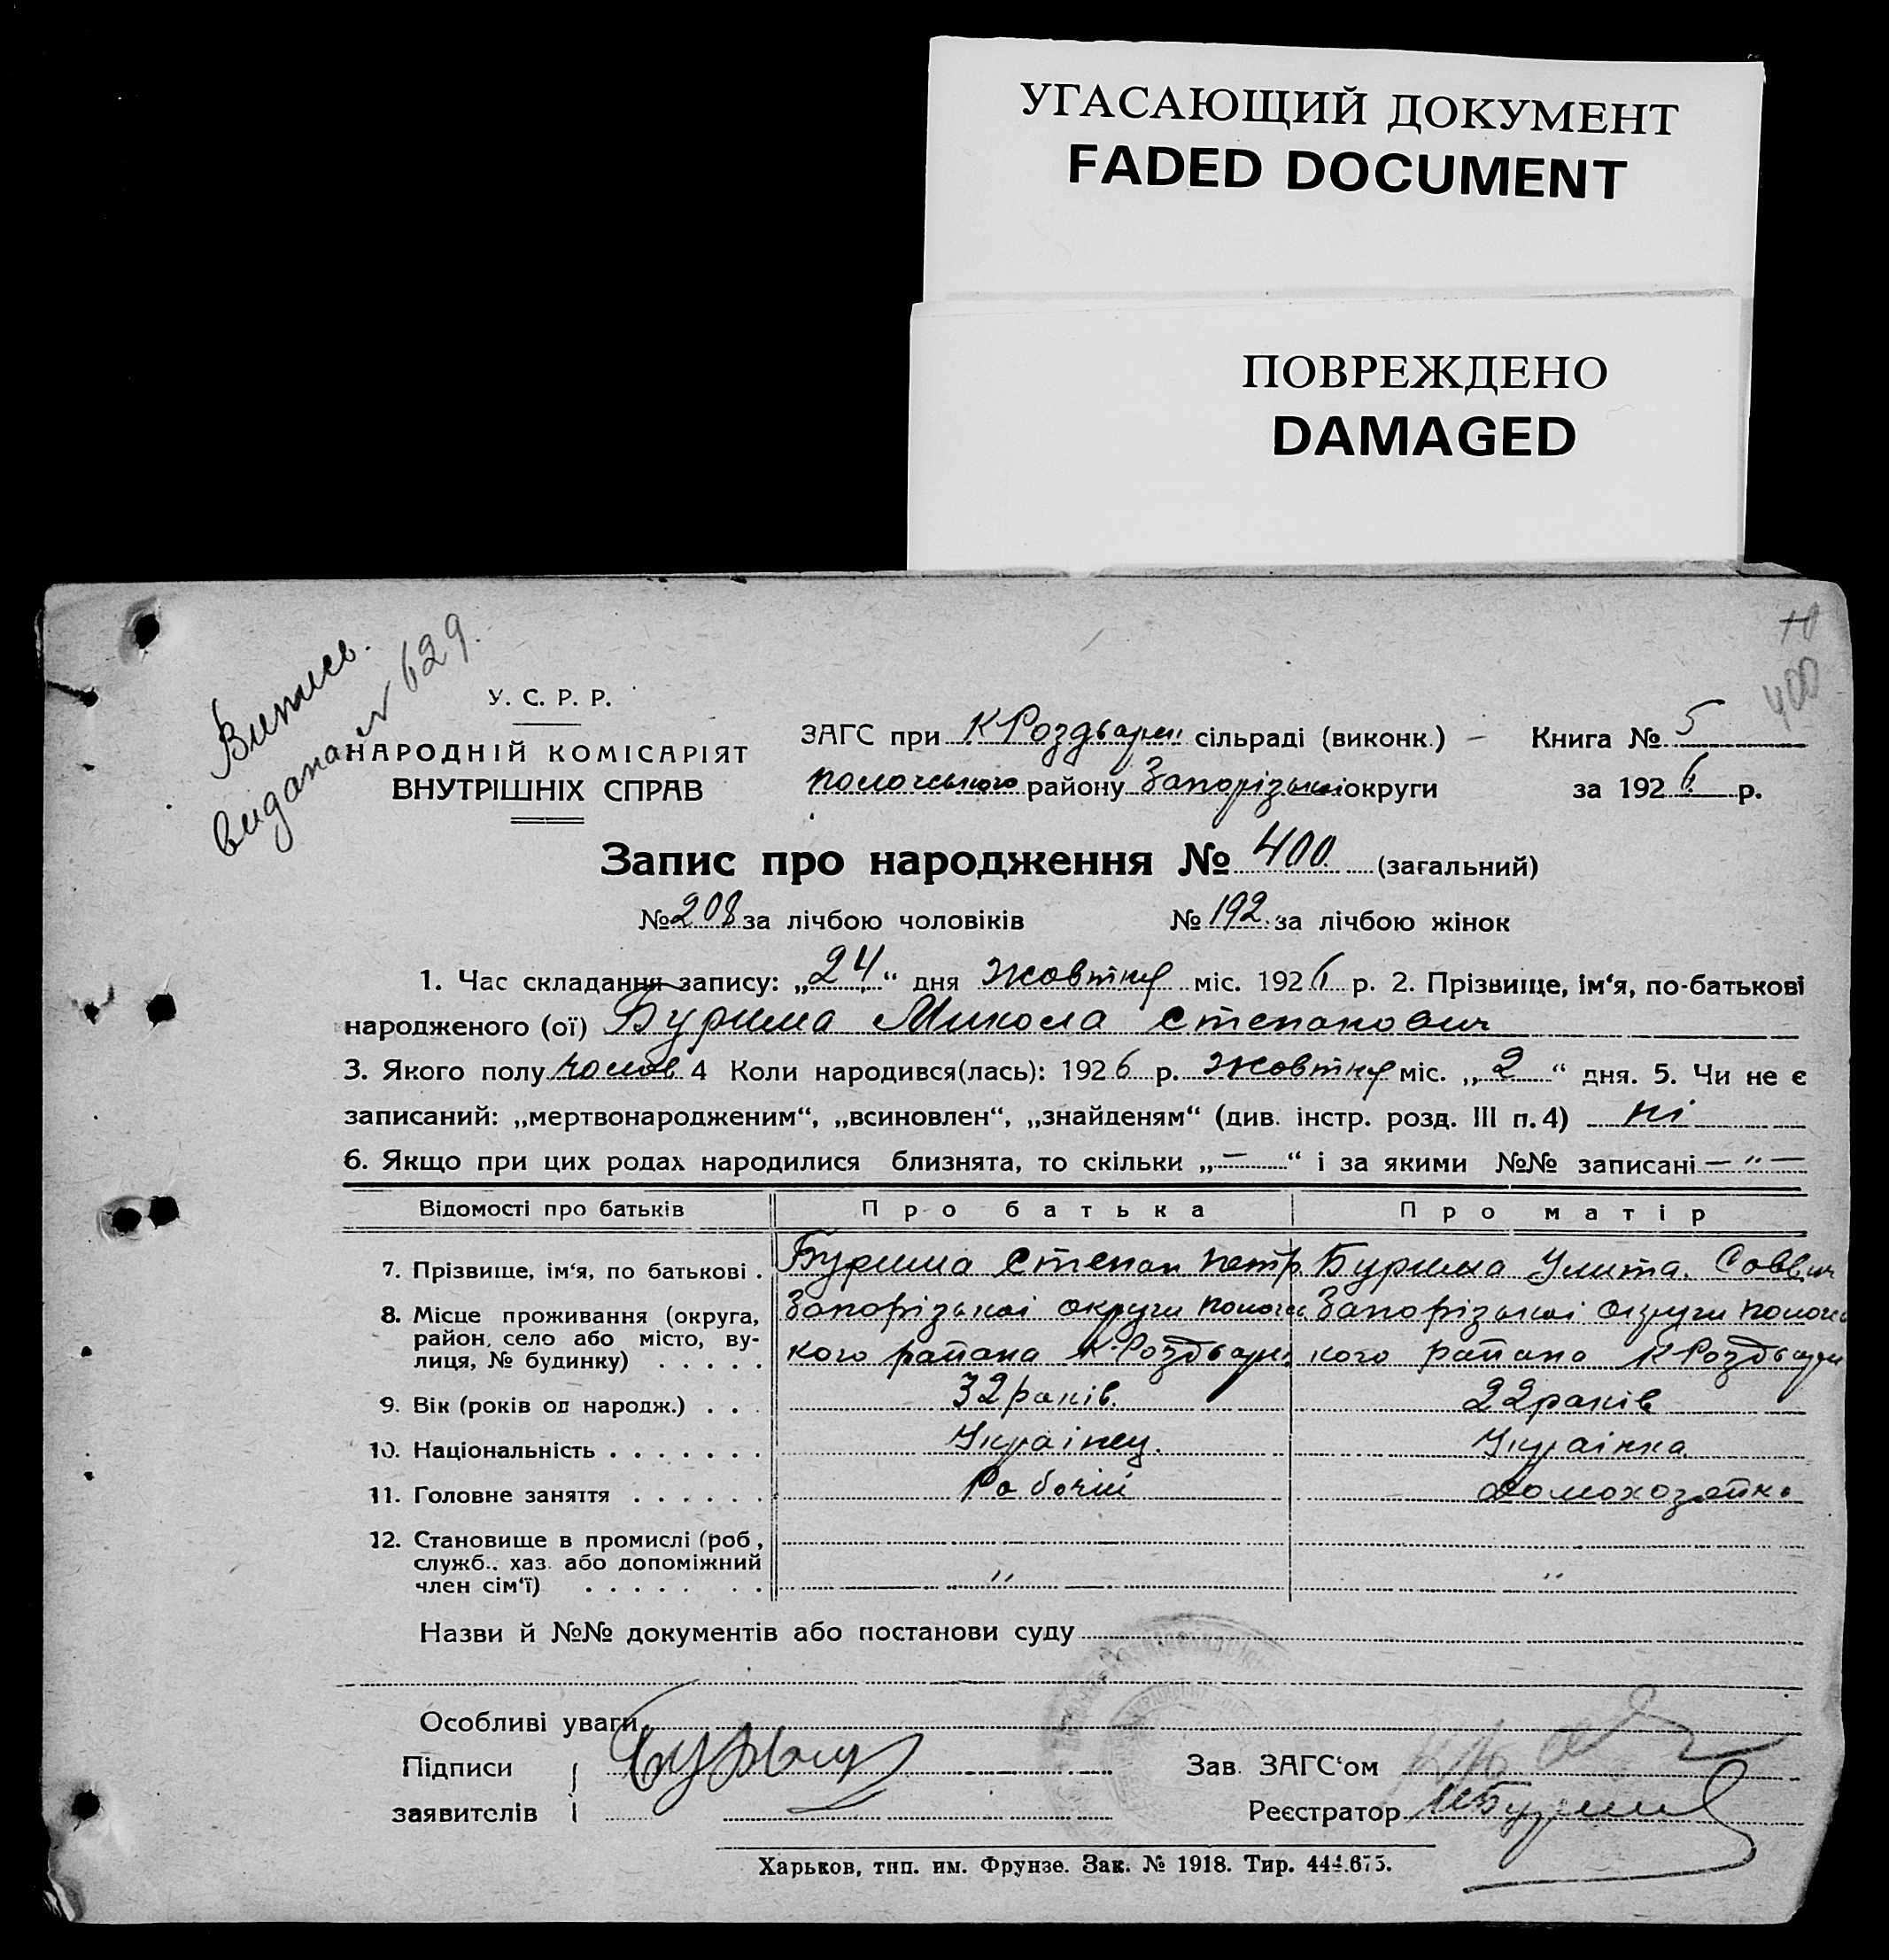 УГАСАЮЩИЙ ДОКУМЕНТ
FADED DOCUMENT
ПОВРЕЖДЕНО
DAMAGED
400
Випись
видана N 629.
У. С. Р. Р.
НАРОДНІЙ КОМІСАРІЯТ
ВНУТРІШНІХ СПРАВ
ЗАГС при К Роздварı сільраді (виконк.) – Книга № 5
Пологського району Запорізькоі округи за 1926 р.
Запис про народження № 400 (загальний)
№ 208 за лічбою чоловіків № 192 за лічбою жінок
1. Час складання запису: „24“ дня жовтня міс. 1926 р. 2. Прізвище, ім‘я, по-батькові
народженого (ої) Бурима Микола Степанович
3. Якого полу чолов 4 Коли народився(лась): 1926 р. жовтня міс. „2“ дня. 5. Чи не є
записаний: „мертвонародженим“, „всиновлен“, „знайденям“ (див. інстр. розд. III п. 4) ні
6. Якщо при цих родах народилися близнята, то скільки „—“ і за якими №№ записані — " —
Відомості про батьків Про батька Про матір
7. Прізвище, ім‘я, по батькові . Бурима Степан Петр Бурима Улита. Саввич
8. Місце проживання (округа, район, село або місто, вулиця, № будинку) . . . . . Запорізькоі округи Пологс Запорізькоі округи Пологс
кого района К-Роздвари кого района К Роздвари
9. Вік (років од народж.) . . . 32 років. 22 років
10. Національність . . . . . . . Украінец. Украінка
11. Головне заняття . . . . . . Рабочий домохозяйка
12. Становище в промислі (роб,
служб., хаз. або допоміжний
член сім‘ї) . . . . . . . " "
Назви й №№ документів або постанови суду
Особливі уваги
Підписи Зав. ЗАГС‘ом
заявителів Реєстратор
Харьков, тип. им. Фрунзе. Зак. № 1918. Тир. 444.675.